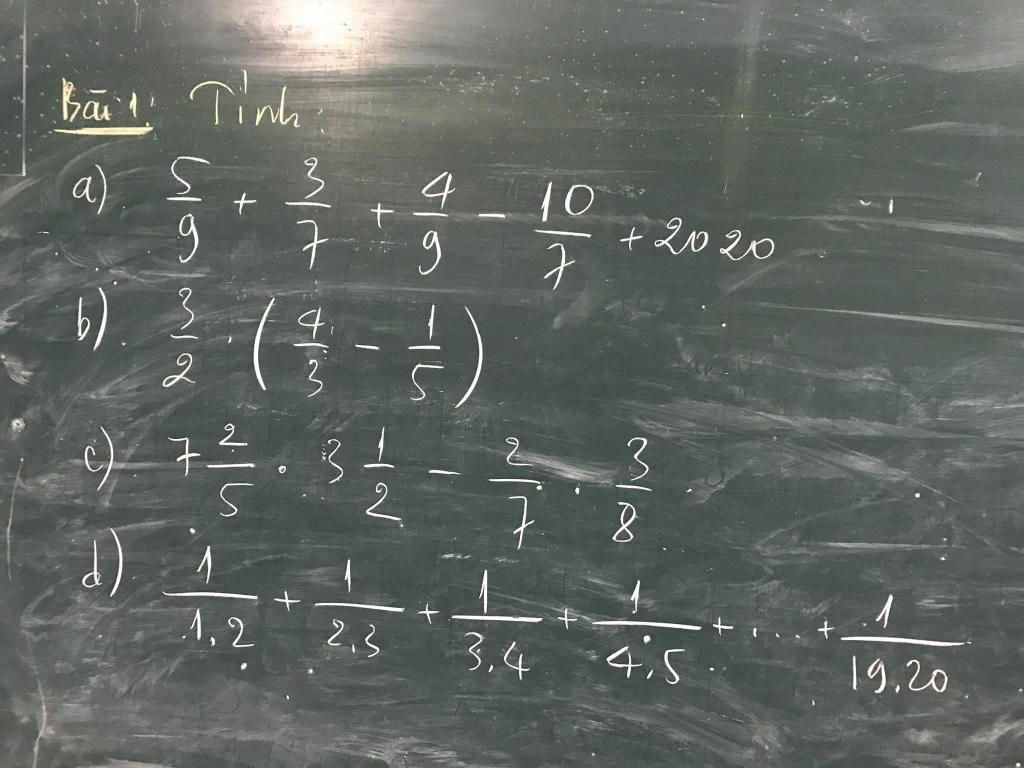 Bài 1: Tính:
a) 5/9 + 3/7 + 4/9 - 10/7 + 2020
b) 3/2 . (4/3 - 1/5)
c) 7 2/5 . 3 1/2 - 2/7 . 3/8
d) 1/1.2 + 1/2.3 + 1/3.4 + 1/4.5 + ... + 1/19.20